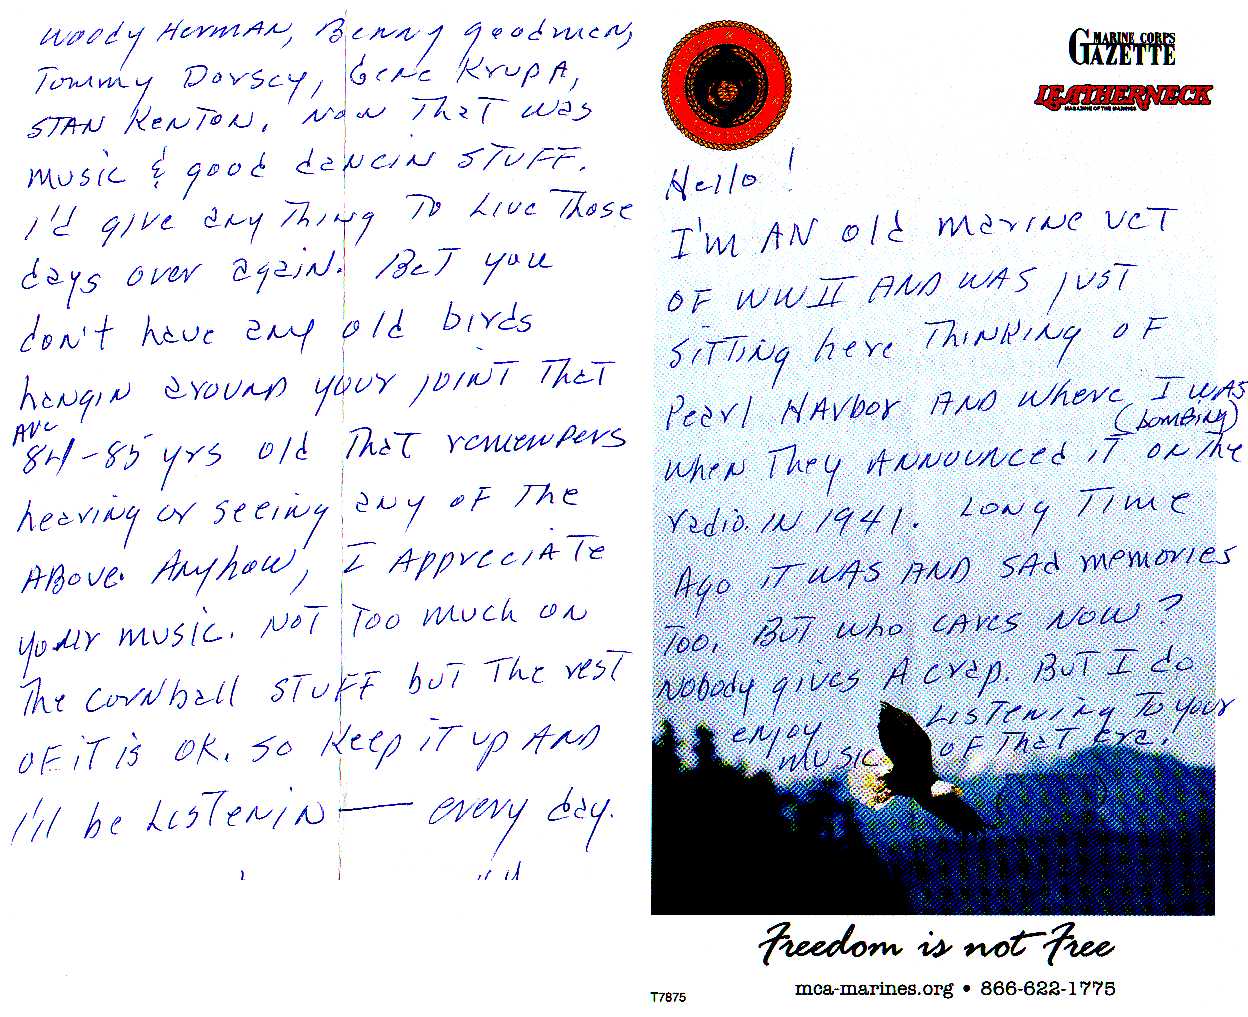 Woody Herman, Benny Goodman,
Tommy Dorsey, Gene Krupa,
STAN KENTON. Now That was
music & good dancin STUFF.
I'd give any Thing To Live Those
days over again. Bet you
don't have any old birds
hangin around your joint That
Are
84-85 yrs old That remembers
hearing or seeing any of The
Above. Anyhow, I Appreciate
your music. Not Too much on
The cornball STUFF but The rest
OF iT is OK. So Keep iT up AND
I'll be Listenin — every day.
MARINE CORPS
GAZETTE
LEATHERNECK
MAGAZINE OF THE MARINES
Hello!
I'm AN old marine veT
OF WWII AND WAS jUST
SiTTing here Thinking OF
Pearl Harbor AND where I was
(bombing)
when They ANNOUNced iT on The
radio. IN 1941. Long Time
Ago iT WAS AND SAd memories
Too. BuT who cares NOW?
Nobody gives A crap. BuT I do
enjoy Listening To your
music OF ThaT era.
Freedom is not Free
mca-marines.org • 866-622-1775
T7875